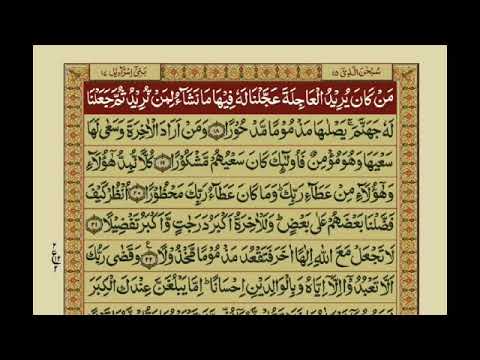 سُبْحٰنَ الَّذِیْ ١٥
بَنِیْٓ اِسْرَآءِیْل ١٧
مَنْ كَانَ یُرِیْدُ الْعَاجِلَةَ عَجَّلْنَا لَهٗ فِیْهَا مَا نَشَآءُ لِمَنْ نُّرِیْدُ ثُمَّ جَعَلْنَا
لَهٗ جَهَنَّمَ ۚ یَصْلٰىهَا مَذْمُوْمًا مَّدْحُوْرًا ﴿١٨﴾ وَمَنْ اَرَادَ الْاٰخِرَةَ وَسَعٰى لَهَا
سَعْیَهَا وَهُوَ مُؤْمِنٌ فَاُولٰٓئِكَ كَانَ سَعْیُهُمْ مَّشْكُوْرًا ﴿١٩﴾ كُلًّا نُّمِدُّ هٰٓؤُلَآءِ
وَهٰٓؤُلَآءِ مِنْ عَطَآءِ رَبِّكَ ؕ وَمَا كَانَ عَطَآءُ رَبِّكَ مَحْظُوْرًا ﴿٢٠﴾ اُنْظُرْ كَیْفَ
فَضَّلْنَا بَعْضَهُمْ عَلٰى بَعْضٍ ؕ وَلَلْاٰخِرَةُ اَكْبَرُ دَرَجٰتٍ وَّاَكْبَرُ تَفْضِیْلًا ﴿٢١﴾
لَا تَجْعَلْ مَعَ اللّٰهِ اِلٰهًا اٰخَرَ فَتَقْعُدَ مَذْمُوْمًا مَّخْذُوْلًا ﴿٢٢﴾ ع وَقَضٰى رَبُّكَ
اَلَّا تَعْبُدُوْٓا اِلَّآ اِیَّاهُ وَبِالْوَالِدَیْنِ اِحْسَانًا ؕ اِمَّا یَبْلُغَنَّ عِنْدَكَ الْكِبَرَ